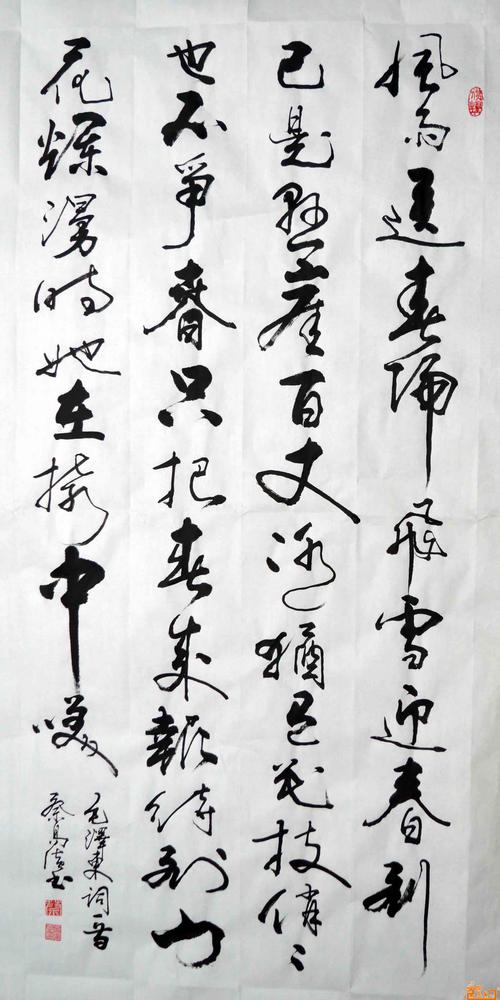 風雨送春歸飛雪迎春到
已是懸崖百丈冰猶有花枝俏〻
也不爭春只把春來報待到山
花爛漫時她在叢中笑
毛澤東詞一首
蔡書